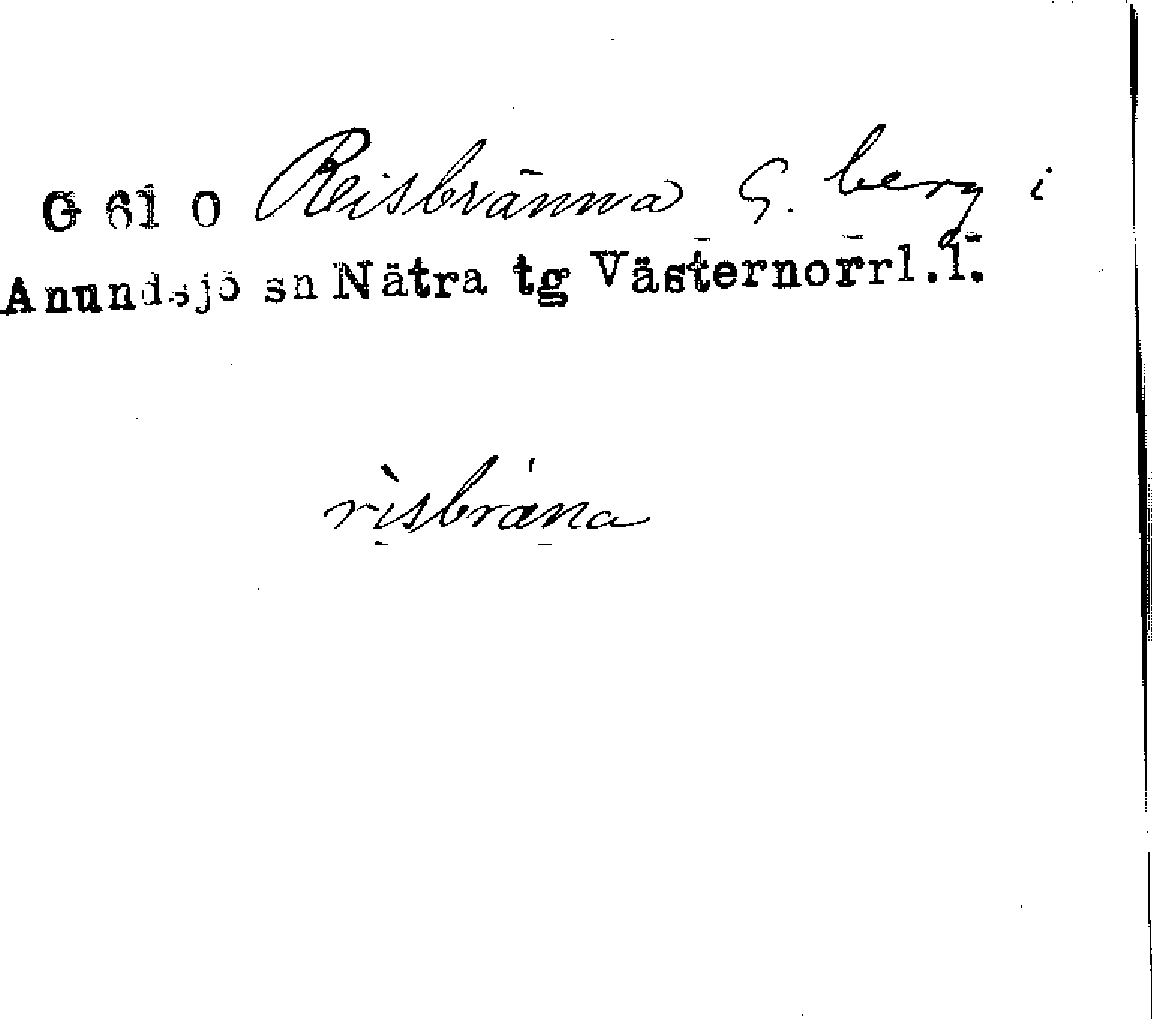 G 61 O Reisbränna G. berg i
Anundsjö sn Nätra tg Västernorrl.l.
rìsbræ'na